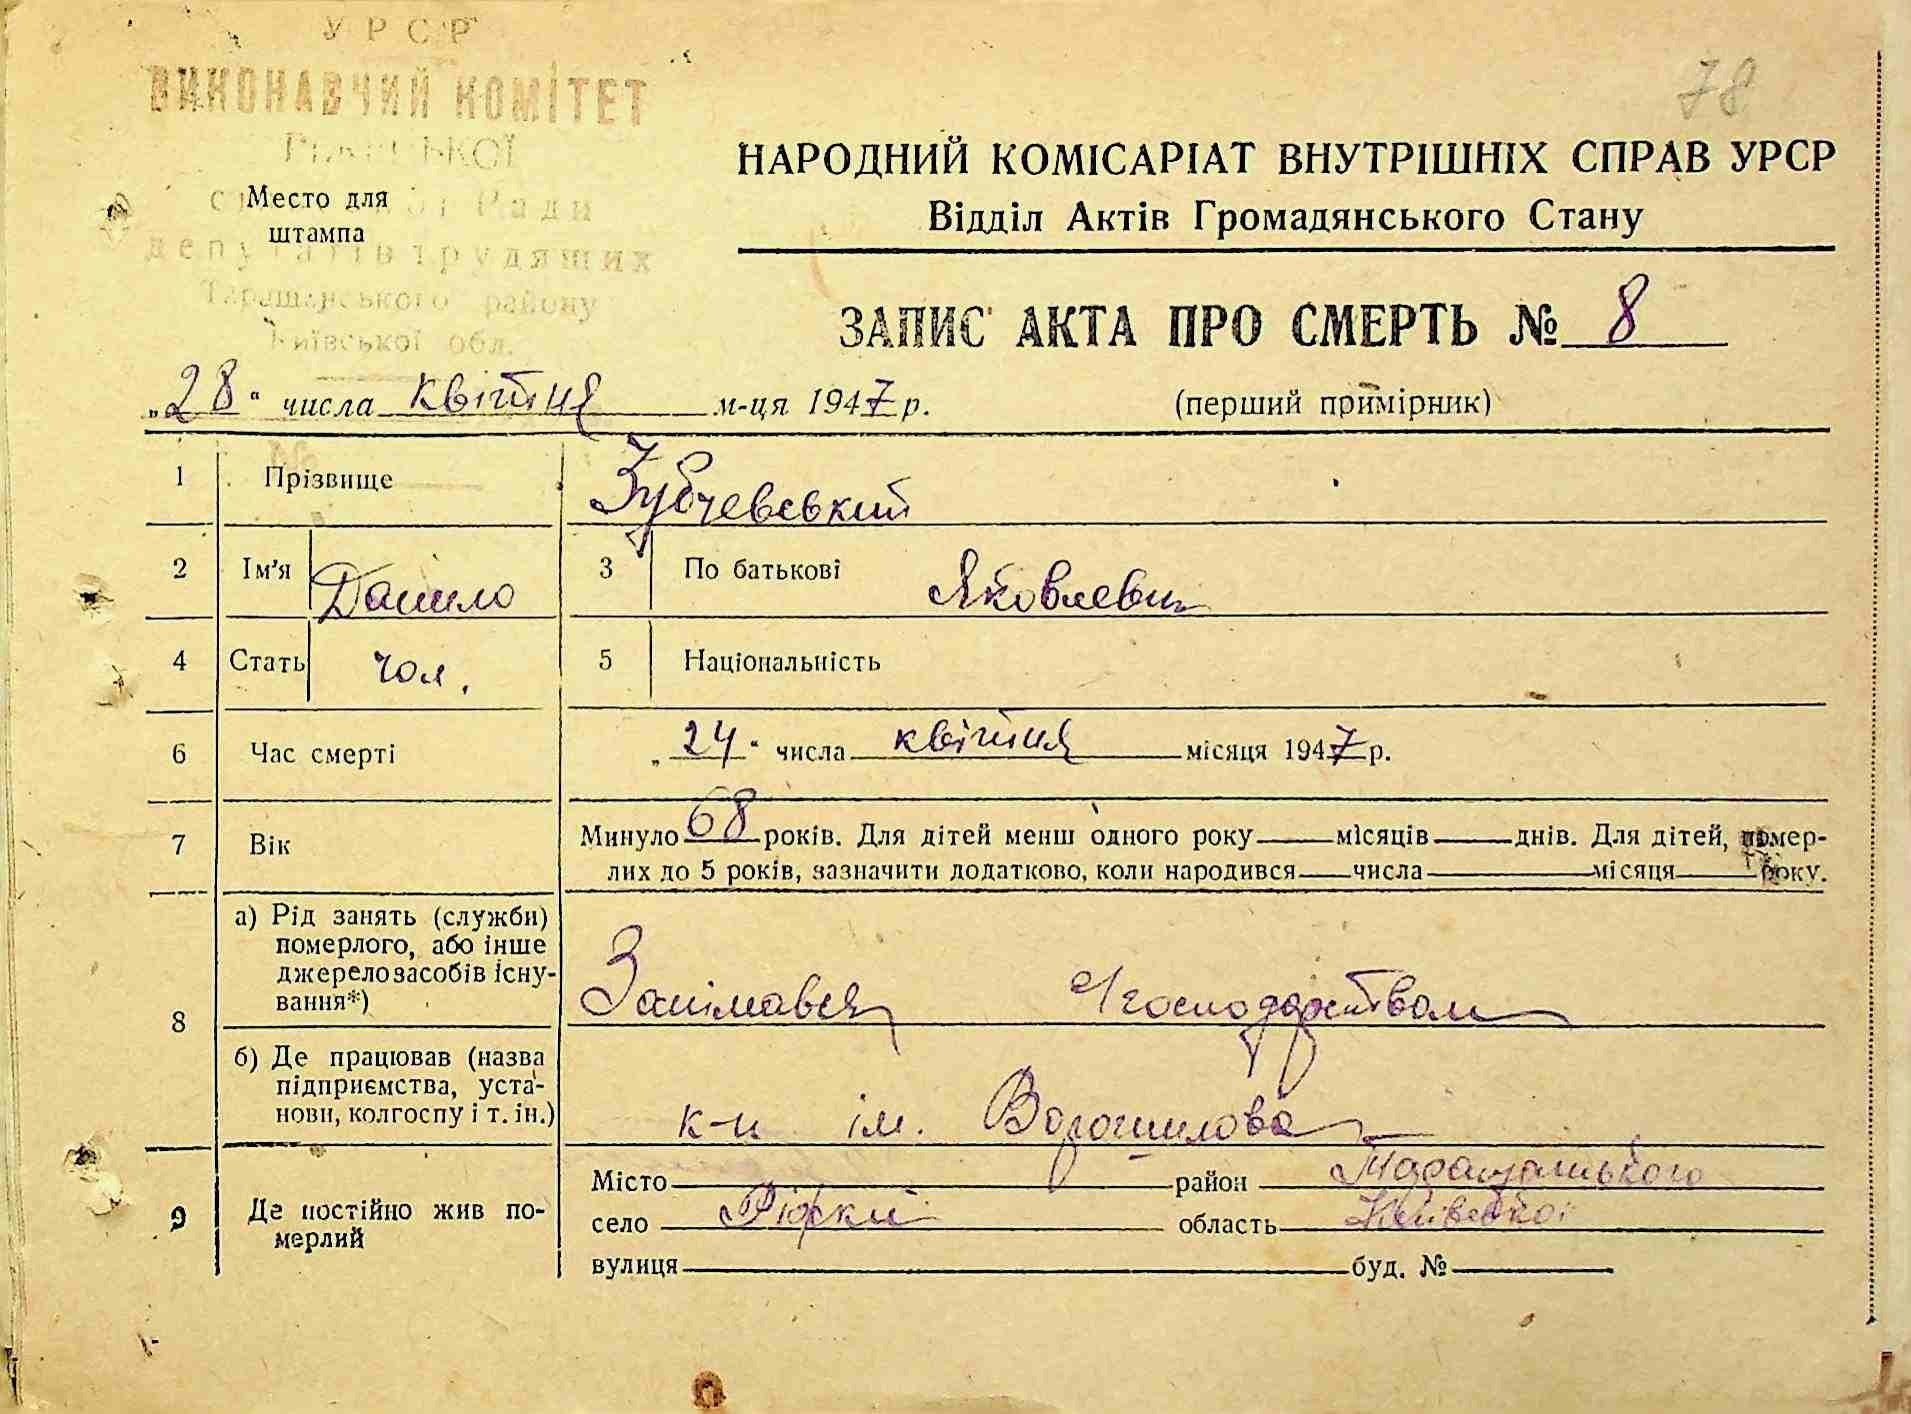 УРСР
ВИКОНАВЧИЙ КОМІТЕТ
78
Ради
депутатів трудящих
Таращанського району
Київської обл.
Место для
штампа
НАРОДНИЙ КОМІСАРІАТ ВНУТРІШНІХ СПРАВ УРСР
Відділ Актів Громадянського Стану
ЗАПИС АКТА ПРО СМЕРТЬ № 8
„28“ числа квітня м-ця 1947 р.
(перший примірник)
1 Прізвище Зубчевський
2 Ім'я Данило 3 По батькові Яковлевич
4 Стать чол. 5 Національність
6 Час смерті „24“ числа квітня місяця 1947 р.
7 Вік Минуло 68 років. Для дітей менш одного року місяців днів. Для дітей, помер-
лих до 5 років, зазначити додатково, коли народився числа місяця року.
8 а) Рід занять (служби)
померлого, або інше
джерело засобів існу-
вання*)
Занімався господарством
б) Де працював (назва
підприємства, уста-
нови, колгоспу і т. ін.)
к-п ім. Ворошилова
9 Де постійно жив по-
мерлий
Місто район Таращанського
село Ріжки область Київської
вулиця буд. №